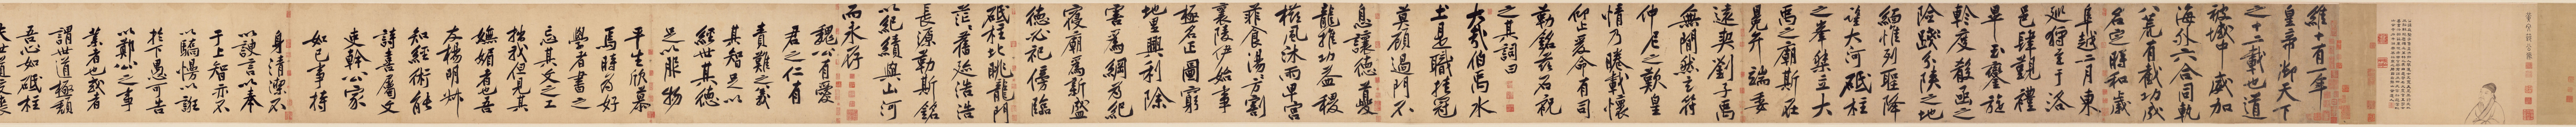 維十有一年
皇帝御天下
之十二載也道
被域中威加
海外六合同軌
八荒有截功成
名定時和歲
阜越二月東
巡狩至于洛
邑肆覲禮
畢玉鑾旋
軫度殽函之
險踐分陝之地
緬惟列聖降
望大河砥柱
之峯桀立大
禹之廟斯在
冕弁端委
遠契劉子禹
無間然玄符
仲尼之歎皇
情乃睠載懷
仰止爰命有司
勒銘茲石祝
之其詞曰
大哉伯禹水
土是職挂冠
莫顧過門不
息讓德夔
龍推功益稷
櫛風沐雨卑宮
菲食湯〻方割
襄陵伊始事
極名正圖窮
地里興利除
害為綱為紀
寢廟為新盛
德必祀傍臨
砥柱北眺龍門
茫〻舊迹浩浩
長源勒斯銘
以紀績與山河
而永存
魏公有愛
君之仁有
責難之義
其智足以
經世其德
足以服物
平生欣慕
焉時為好
學者書之
忘其文之工
拙我但見其
嫵媚者也吾
友楊明叔
知經術能
詩喜屬文
吏幹公家
如己事持
身清潔不
以諛言以奉
于上智亦不
以驕慢以誑
於下愚可告
以鄭公之事
業者也或者
謂世道極頹
吾心如砥柱
夫世道交喪